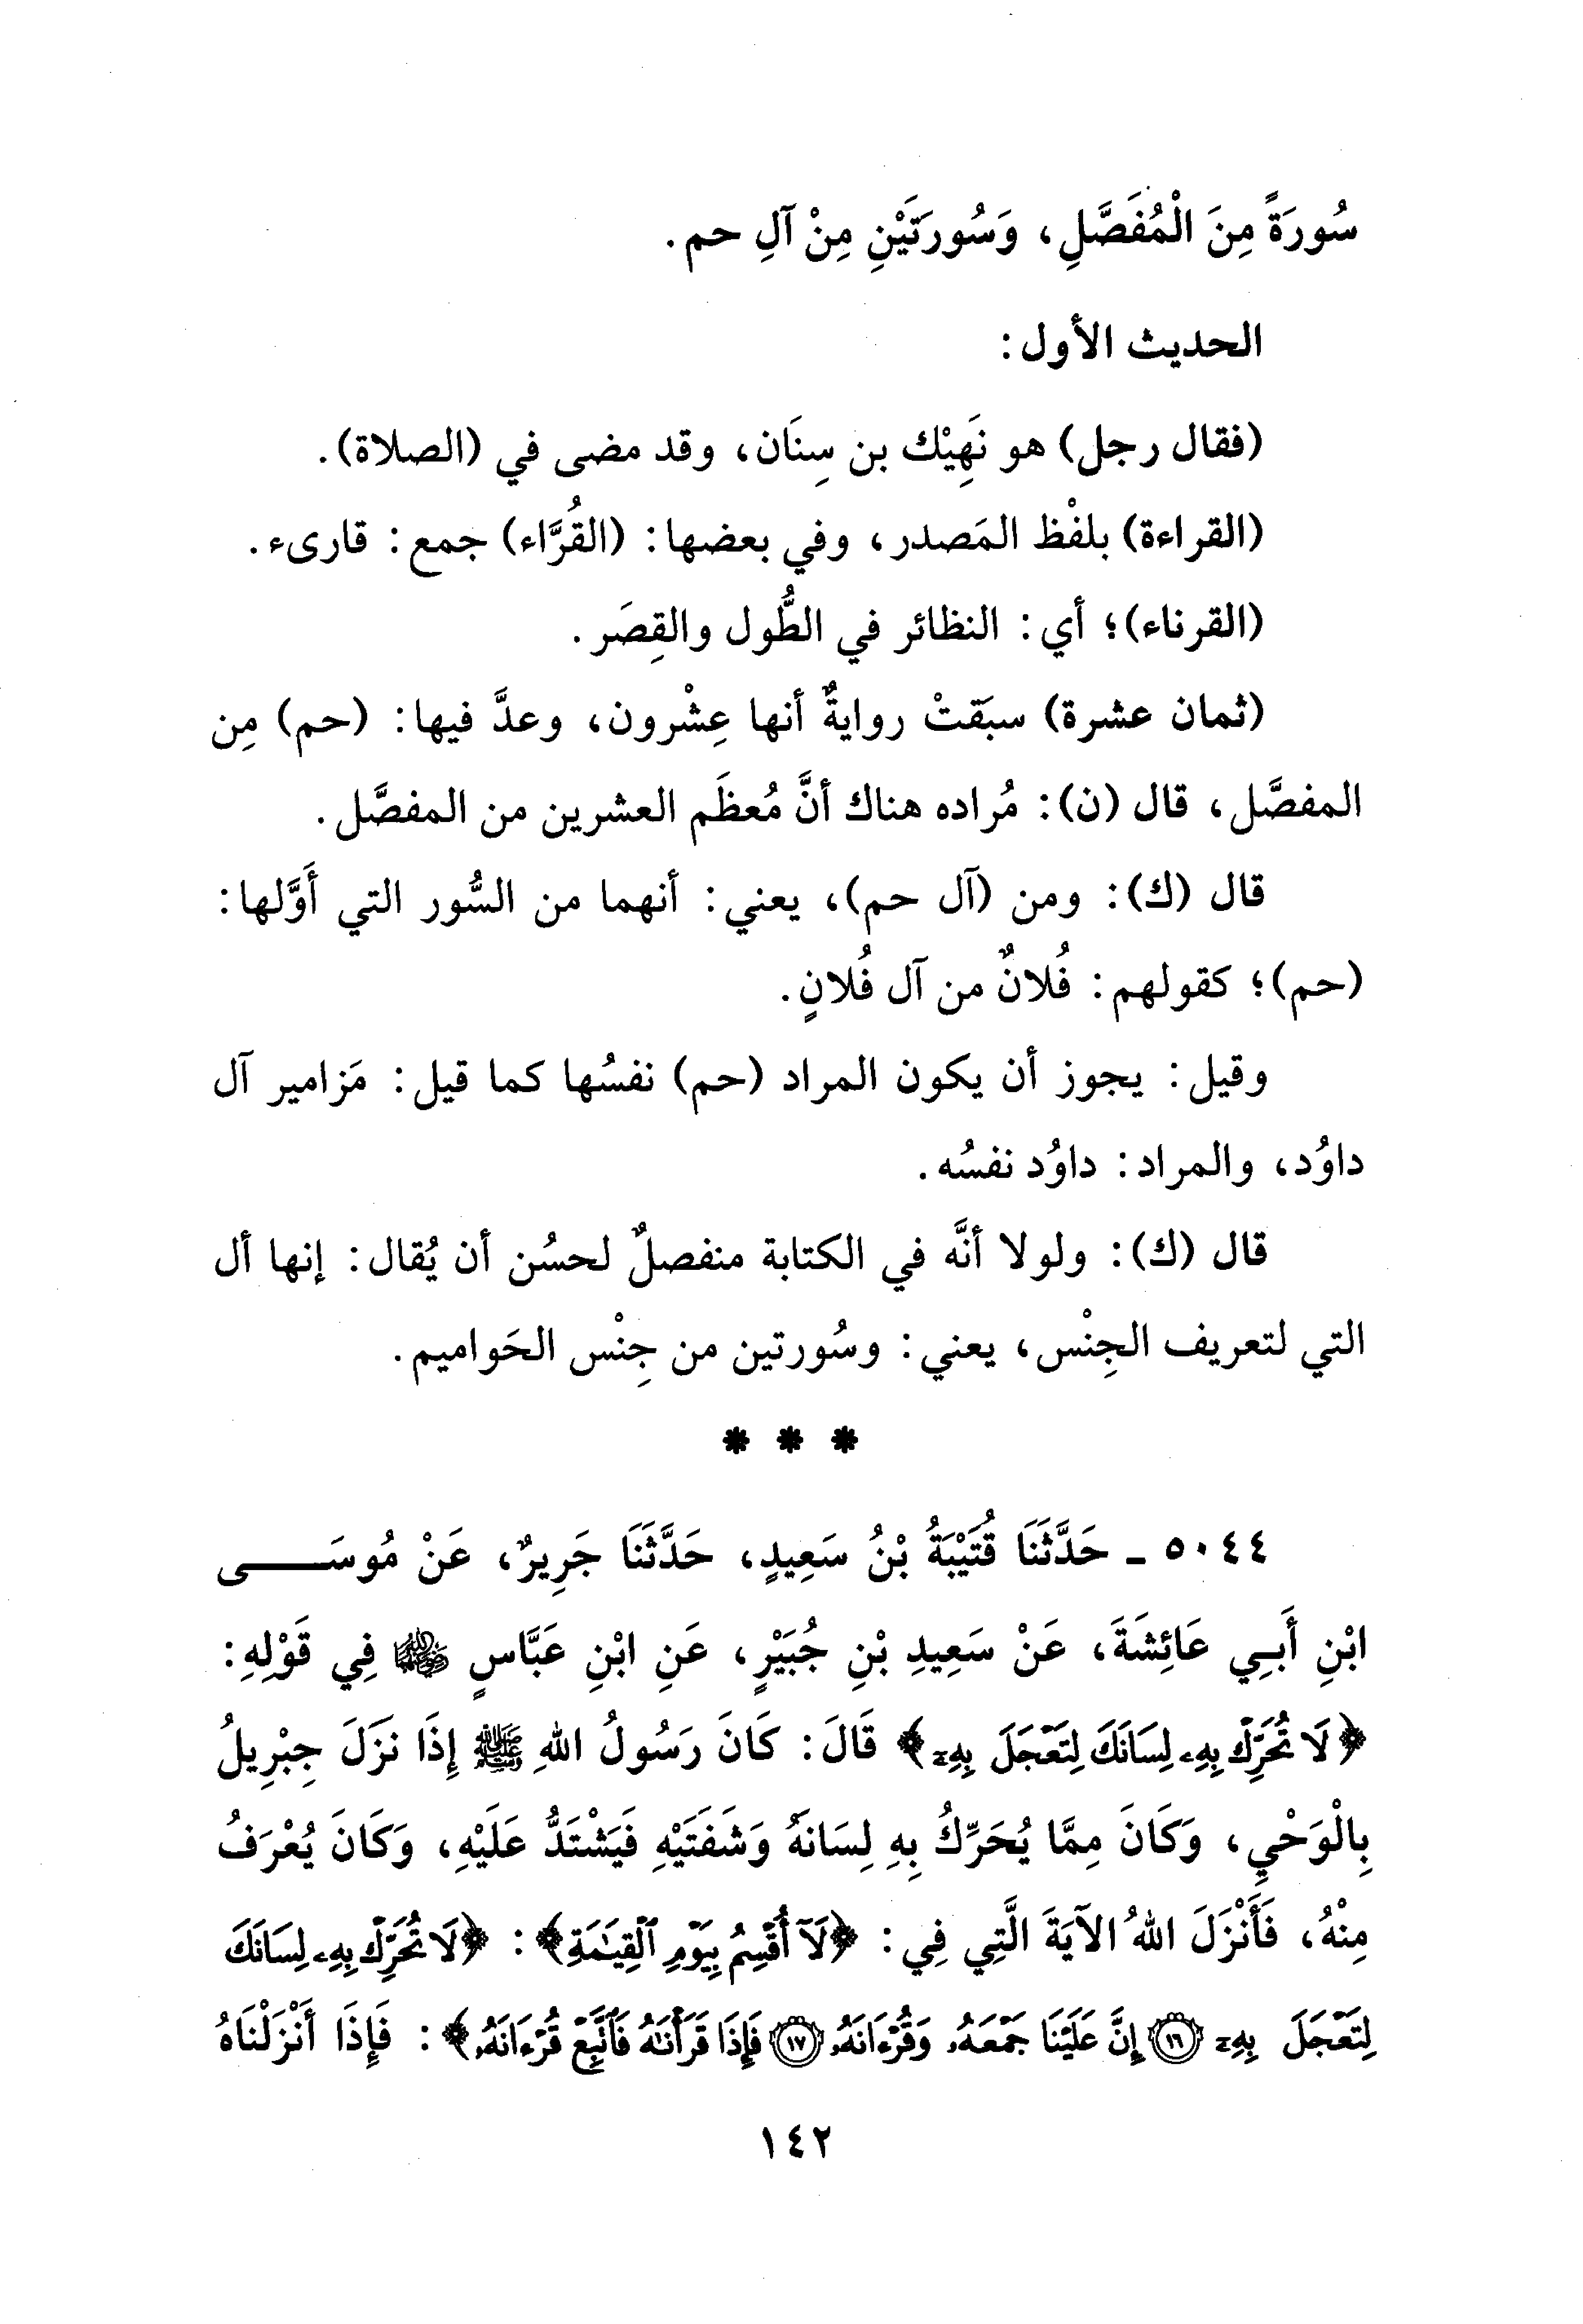 سُورَةً مِنَ الْمُفَصَّلِ، وَسُورَتَيْنِ مِنْ آلِ حم.
الحديث الأول:
(فقال رجل) هو نَهِيْك بن سِنَان، وقد مضى في (الصلاة).
(القراءة) بلفْظ المَصدر، وفي بعضها: (القُرَّاء) جمع: قارىء.
(القرناء)؛ أي: النظائر في الطُّول والقِصَر.
(ثمان عشرة) سبَقتْ روايةٌ أنها عِشْرون، وعدَّ فيها: (حم) مِن
المفصَّل، قال (ن): مُراده هناك أنَّ مُعظَم العشرين من المفصَّل.
قال (ك): ومن (آل حم)، يعني: أنهما من السُّور التي أَوَّلها:
(حم)؛ كقولهم: فُلانٌ من آل فُلانٍ.
وقيل: يجوز أن يكون المراد (حم) نفسُها كما قيل: مَزامير آل
داوُد، والمراد: داوُد نفسُه.
قال (ك): ولولا أنَّه في الكتابة منفصلٌ لحسُن أن يُقال: إنها أل
التي لتعريف الجِنْس، يعني: وسُورتين من جِنْس الحَواميم.
* * *
٥٠٤٤ - حَدَّثَنَا قُتَيْبَةُ بْنُ سَعِيدٍ، حَدَّثَنَا جَرِيرٌ، عَنْ مُوسَـــى
ابْنِ أَبِي عَائِشَةَ، عَنْ سَعِيدِ بْنِ جُبَيْرٍ، عَنِ ابْنِ عَبَّاسٍ ﵄ فِي قَوْلِهِ:
﴿لَا تُحَرِّكْ بِهِۦ لِسَانَكَ لِتَعْجَلَ بِهِۦٓ﴾ قَالَ: كَانَ رَسُولُ اللهِ ﷺ إِذَا نَزَلَ جِبْرِيلُ
بِالْوَحْيِ، وَكَانَ مِمَّا يُحَرِّكُ بِهِ لِسَانَهُ وَشَفَتَيْهِ فَيَشْتَدُّ عَلَيْهِ، وَكَانَ يُعْرَفُ
مِنْهُ، فَأَنْزَلَ اللهُ الآيَةَ الَّتِي فِي: ﴿لَآ أُقْسِمُ بِيَوْمِ ٱلْقِيَٰمَةِ﴾: ﴿لَا تُحَرِّكْ بِهِۦ لِسَانَكَ
لِتَعْجَلَ بِهِۦٓ ١٦ إِنَّ عَلَيْنَا جَمْعَهُۥ وَقُرْءَانَهُۥ ١٧ فَإِذَا قَرَأْنَٰهُ فَٱتَّبِعْ قُرْءَانَهُۥ﴾: فَإِذَا أَنْزَلْنَاهُ
١٤٢